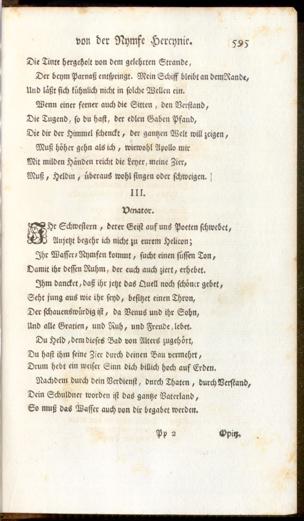 von der Nymfe Hercynie. 595
Die Tinte hergeholt von dem gelehrten Strande,
Der beym Parnaß entspringt. Mein Schiff bleibt an dem Rande,
Und läßt sich kühnlich nicht in solche Wellen ein.
Wenn einer ferner auch die Sitten, den Verstand,
Die Tugend, so du hast, der edlen Gaben Pfand,
Die dir der Himmel schenckt, der gantzen Welt will zeigen,
Muß höher gehn als ich, wiewohl Apollo mir
Mit milden Händen reicht die Leyer, meine Zier,
Muß, Heldin, überaus wohl singen oder schweigen.
III.
Venator.
Ihr Schwestern, derer Geist auf uns Poeten schwebet,
Anjetzt begehr ich nicht zu eurem Helicon;
Ihr Wasser-Nymfen kommt, sucht einen süssen Ton,
Damit ihr dessen Ruhm, der euch auch ziert, erhebet.
Ihm dancket, daß ihr jetzt das Quell noch schöner gebet,
Seht jung aus wie ihr seyd, besitzet einen Thron,
Der schauenswürdig ist, da Venus und ihr Sohn,
Und alle Gratien, und Ruh, und Freude lebet.
Du Held, dem dieses Bad von Alters zugehört,
Du hast ihm seine Zier durch deinen Bau vermehrt,
Drum hebt ein weiser Sinn dich billich hoch auf Erden.
Nachdem durch dein Verdienst, durch Thaten, durch Verstand,
Dein Schuldner worden ist das gantze Vaterland,
So muß das Wasser auch von dir begabet werden.
Pp 2 Opitz.